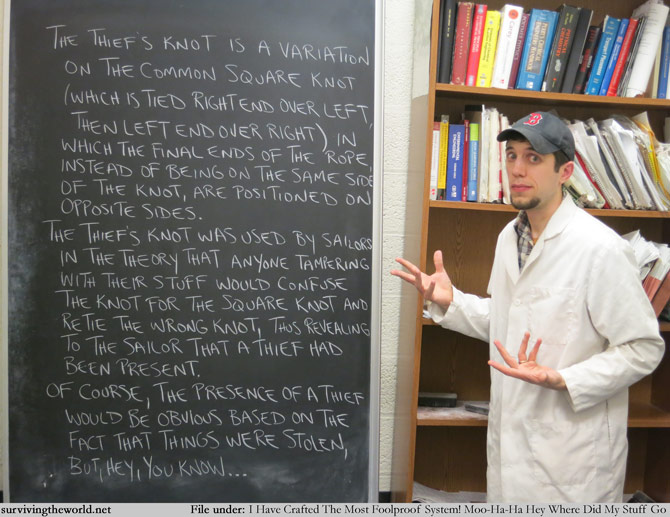 THE THIEF'S KNOT IS A VARIATION
ON THE COMMON SQUARE KNOT
(WHICH IS TIED RIGHT END OVER LEFT,
THEN LEFT END OVER RIGHT) IN
WHICH THE FINAL ENDS OF THE ROPE
INSTEAD OF BEING ON THE SAME SIDE
OF THE KNOT, ARE POSITIONED ON
OPPOSITE SIDES.
THE THIEF'S KNOT WAS USED BY SAILORS
IN THE THEORY THAT ANYONE TAMPERING
WITH THEIR STUFF WOULD CONFUSE
THE KNOT FOR THE SQUARE KNOT AND
RETIE THE WRONG KNOT, THUS REVEALING
TO THE SAILOR THAT A THIEF HAD
BEEN PRESENT.
OF COURSE, THE PRESENCE OF A THIEF
WOULD BE OBVIOUS BASED ON THE
FACT THAT THINGS WERE STOLEN,
BUT, HEY, YOU KNOW...
B
survivingtheworld.net
File under: I Have Crafted The Most Foolproof System! Moo-Ha-Ha Hey Where Did My Stuff Go